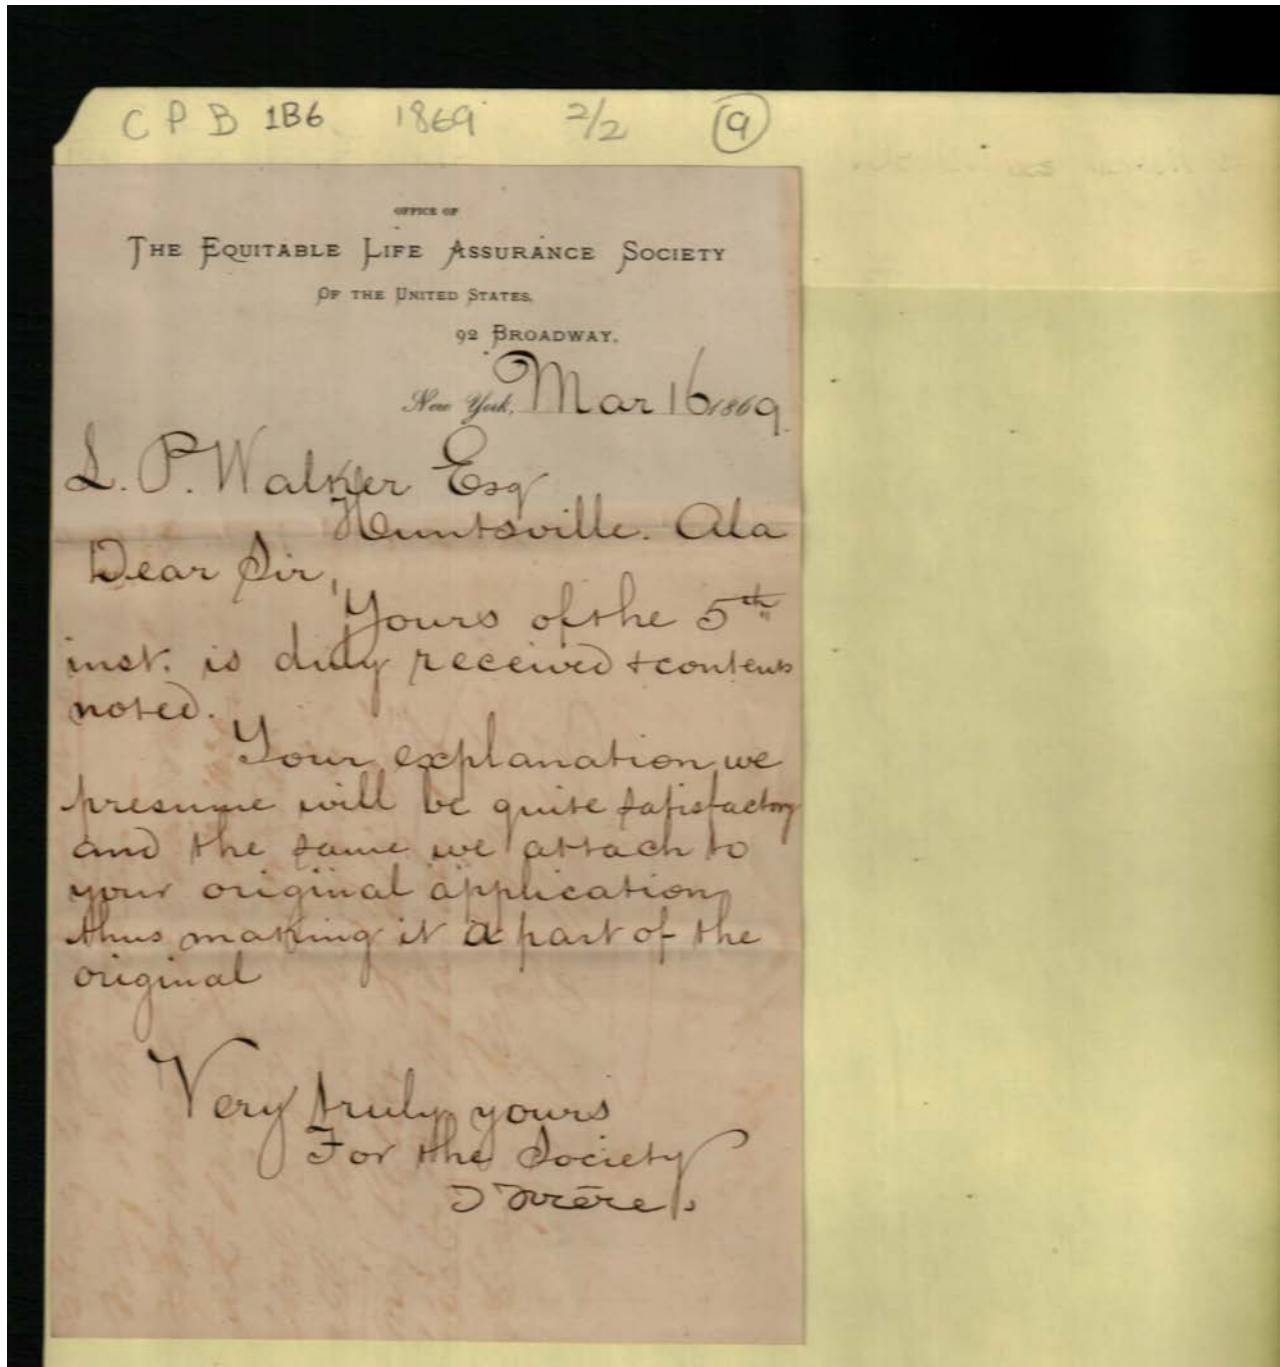 C P B 1B6 1869 2/2 9
OFFICE OF
THE EQUITABLE LIFE ASSURANCE SOCIETY
OF THE UNITED STATES,
92 BROADWAY.
New York, Mar 16 1869.
L. P. Walker Esq
Huntsville. Ala
Dear Sir,
Yours of the 5th
inst. is duly received + contents
noted.
Your explanation we
presume will be quite satisfactory
and the same we attach to
your original application
thus making it a part of the
original
Very truly yours
For the Society